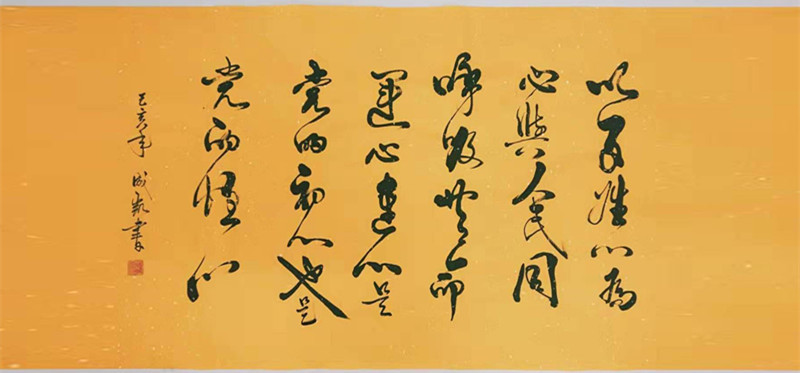 以百姓心為
心與人民同
呼吸共命
運心連心是
党的初心也是
党的恒心
己亥年 成書